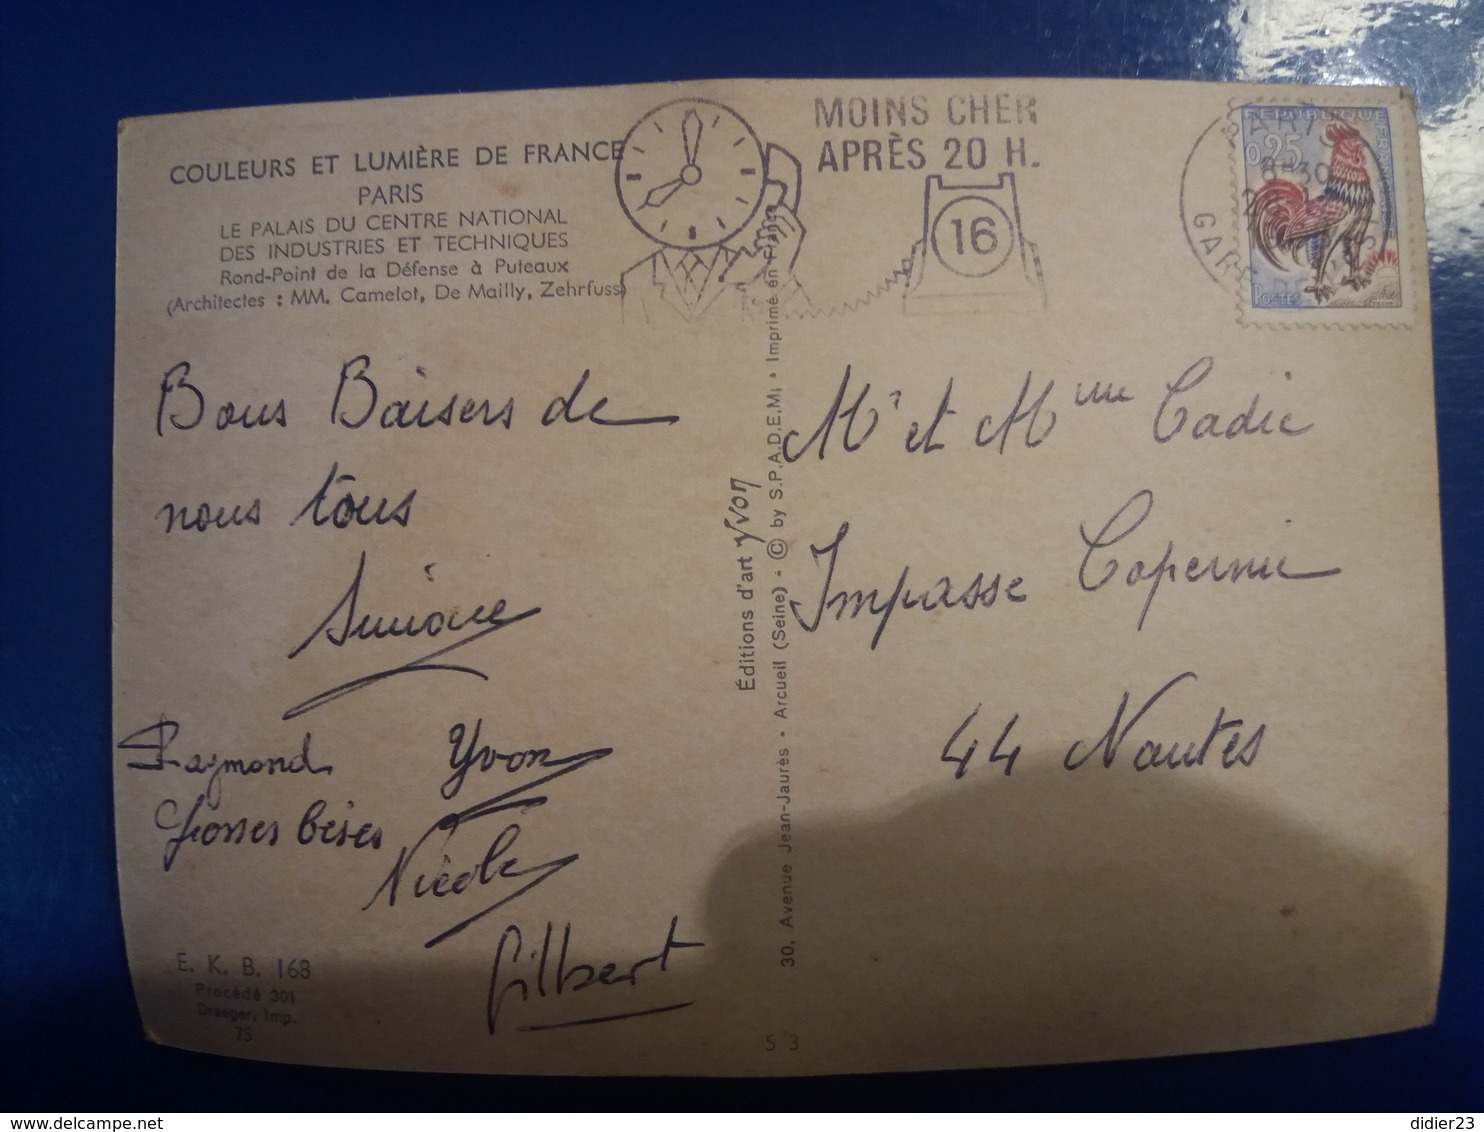 COULEURS ET LUMIÈRE DE FRANCE
PARIS
LE PALAIS DU CENTRE NATIONAL
DES INDUSTRIES ET TECHNIQUES
Rond-Point de la Défense à Puteaux
(Architectes : MM. Camelot, De Mailly, Zehrfuss)
MOINS CHER
APRÈS 20 H.
16
PARIS
8-30
GARE
RÉPUBLIQUE FRANÇAISE
0,25
POSTES
Bons Baisers de
nous tous
Simone
Raymond Yvon
Grosses bises
Nicole
Gilbert
E. K. B. 168
Procédé 301
Draeger, Imp.
75
Éditions d'art Yvon
30, Avenue Jean-Jaurès • Arcueil (Seine) - © by S.P.A.D.E.M. • Imprimé en France
53
Mr et Mme Cadic
Impasse Copernic
44 Nantes
delcampe.net
didier23